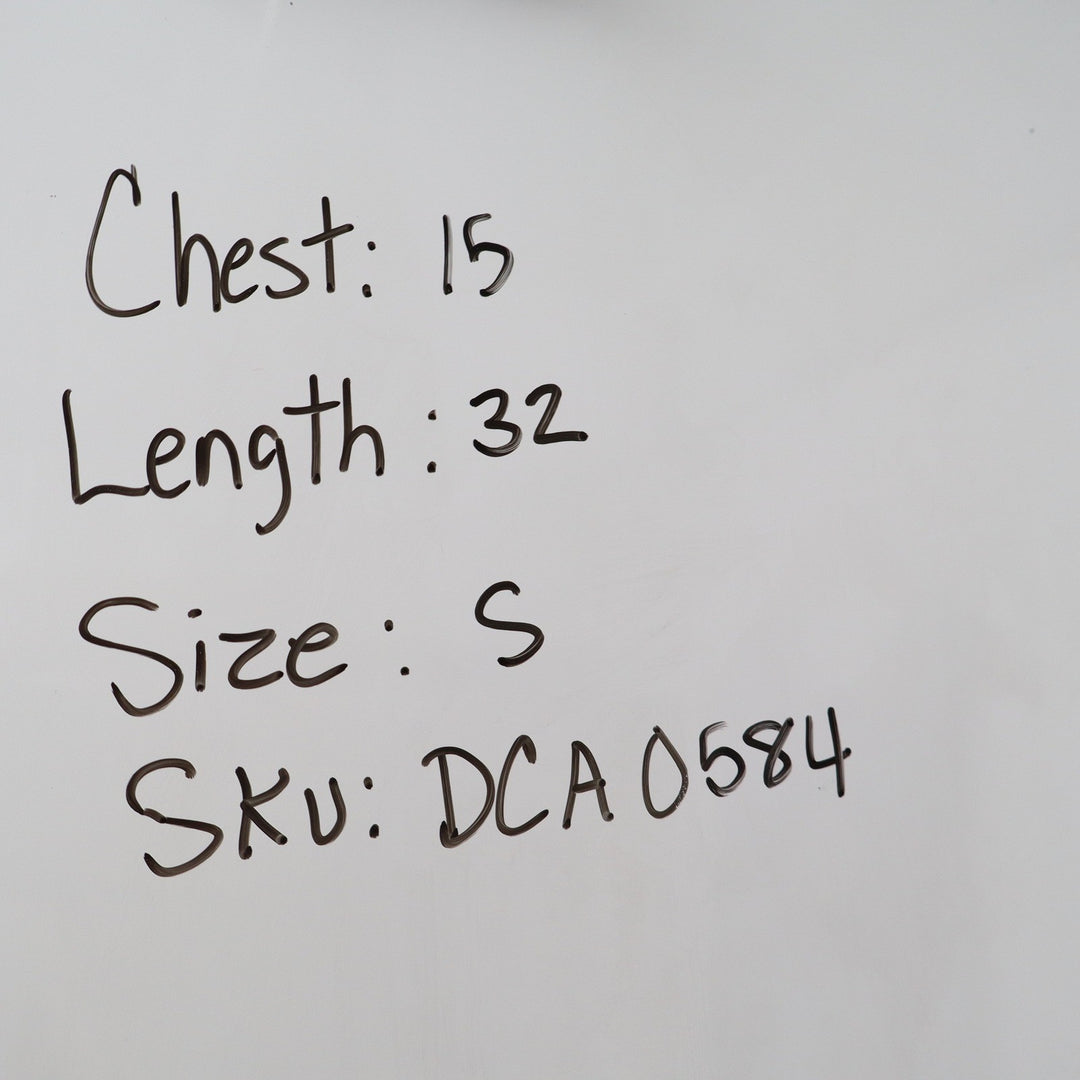 Chest: 15
Length: 32
Size: S
SKU: DCA0584